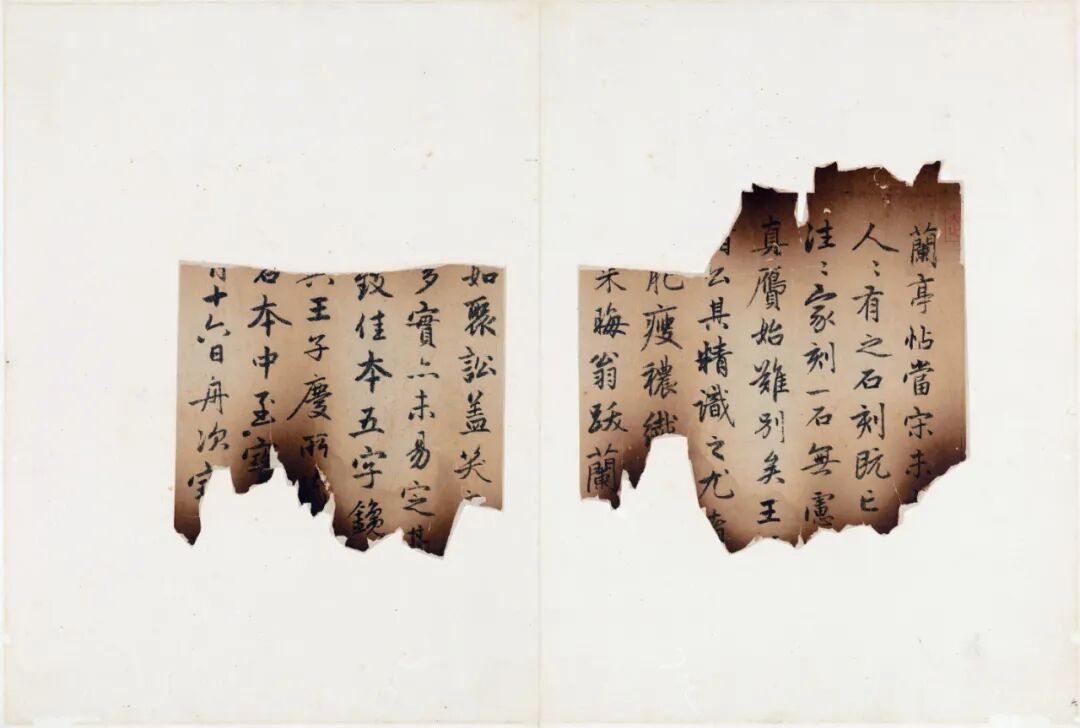 蘭亭帖當宋未
人〻有之石刻既亡
往〻家刻一石無慮
真贋始難別矣王
諸公其精識之尤者
肥瘦穠纖
朱晦翁跋蘭
如聚訟蓋笑之
多實亦未易定其
致佳本五字鑱
與王子慶所
石本中至寶
月十六日舟次寶